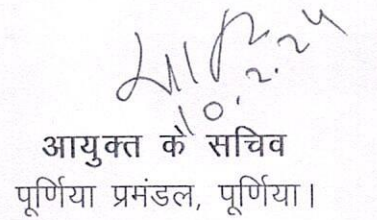 10.2.25
आयुक्त के सचिव
पूर्णिया प्रमंडल, पूर्णिया।